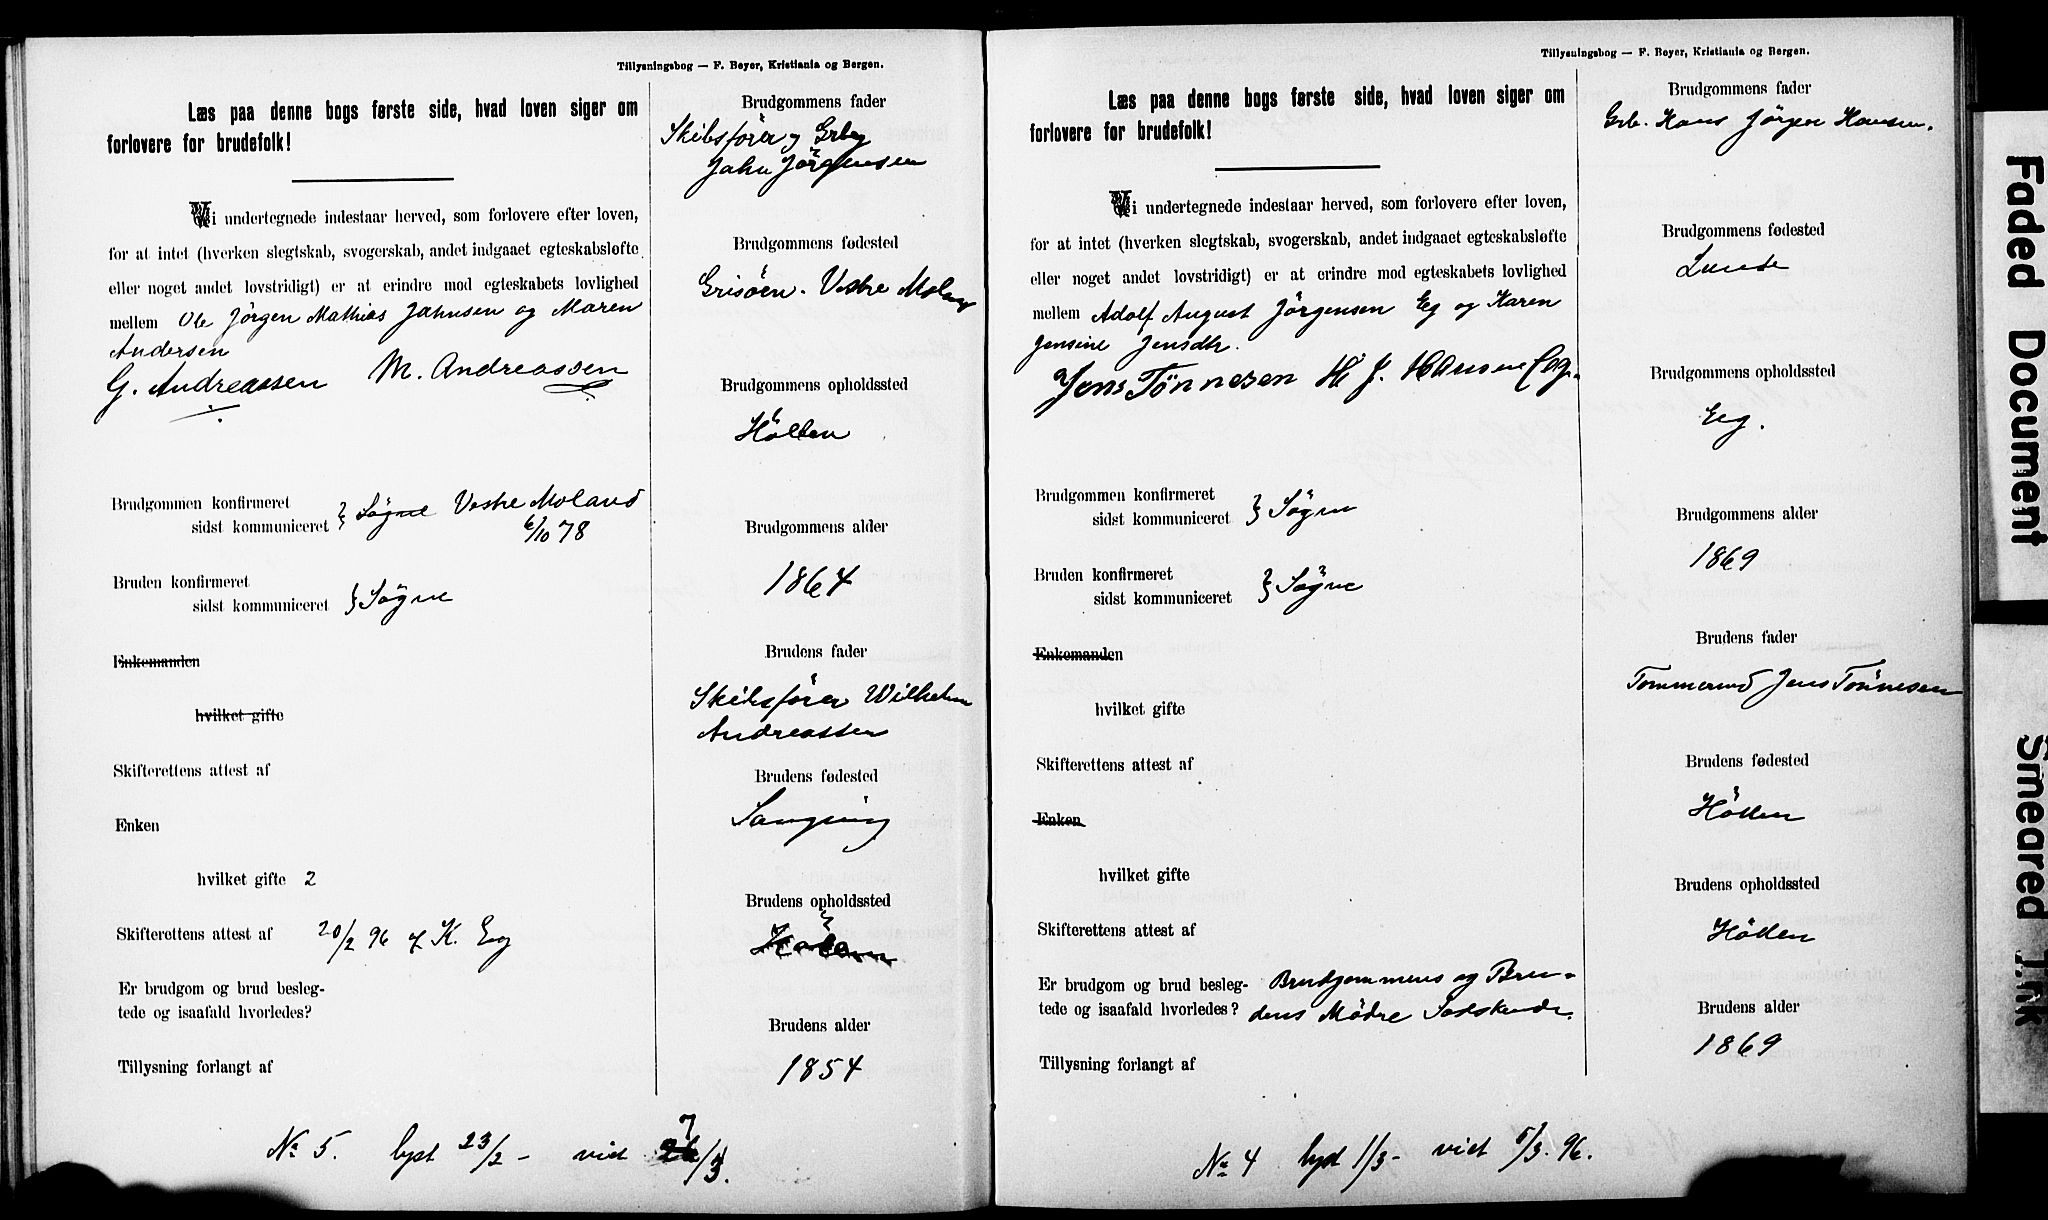 Tillysningsbog — F. Beyer, Kristiania og Bergen.
Læs paa denne bogs første side, hvad loven siger om
forlovere for brudefolk!
Vi undertegnede indestaar herved, som forlovere efter loven,
for at intet (hverken slegtskab, svogerskab, andet indgaaet egteskabsløfte
eller noget andet lovstridigt) er at erindre mod egteskabets lovlighed
mellem Ole Jörgen Mathias Jahnsen og Maren
Andersen
G. Andreassen M. Andreassen
Brudgommen konfirmeret
sidst kommuniceret } Søgne Vestre Moland
6/10 78
Bruden konfirmeret
sidst kommuniceret } Søgne
Enkemanden
hvilket gifte
Skifterettens attest af
Enken
hvilket gifte 2
Skifterettens attest af 20/2 96 af K. Eeg
Er brudgom og brud besleg-
tede og isaafald hvorledes?
Tillysning forlangt af
Brudgommens fader
Skibsfører og Grbr
Jahn Jörgensen
Brudgommens fødested
Grisöen. Vestre Moland
Brudgommens opholdssted
Höllen
Brudgommens alder
1864
Brudens fader
Skibsfører Wilhelm
Andreassen
Brudens fødested
Brudens opholdssted
Brudens alder
1854
No 5. lyst 23/2 - viet 26 7/3.
Tillysningsbog — F. Beyer, Kristiania og Bergen.
Læs paa denne bogs første side, hvad loven siger om
forlovere for brudefolk!
Vi undertegnede indestaar herved, som forlovere efter loven,
for at intet (hverken slegtskab, svogerskab, andet indgaaet egteskabsløfte
eller noget andet lovstridigt) er at erindre mod egteskabets lovlighed
mellem Adolf August Jörgensen Eeg og Karen
Jensine Jensdtr.
Jens Tönnesen H. J. Hansen Eeg.
Brudgommen konfirmeret
sidst kommuniceret } Søgne
Bruden konfirmeret
sidst kommuniceret } Søgne
Enkemanden
hvilket gifte
Skifterettens attest af
Enken
hvilket gifte
Skifterettens attest af
Er brudgom og brud besleg- Brudgommens og Bru-
tede og isaafald hvorledes? dens Mödre Sødskende.
Tillysning forlangt af
Brudgommens fader
Grb. Hans Jörgen Hansen.
Brudgommens fødested
Lunde
Brudgommens opholdssted
Eeg.
Brudgommens alder
1869
Brudens fader
Tømmermd Jens Tönnesen
Brudens fødested
Höllen
Brudens opholdssted
Höllen
Brudens alder
1869
No 4 lyst 1/3 - viet 5/3. 96.
Faded Document
Smeared Ink